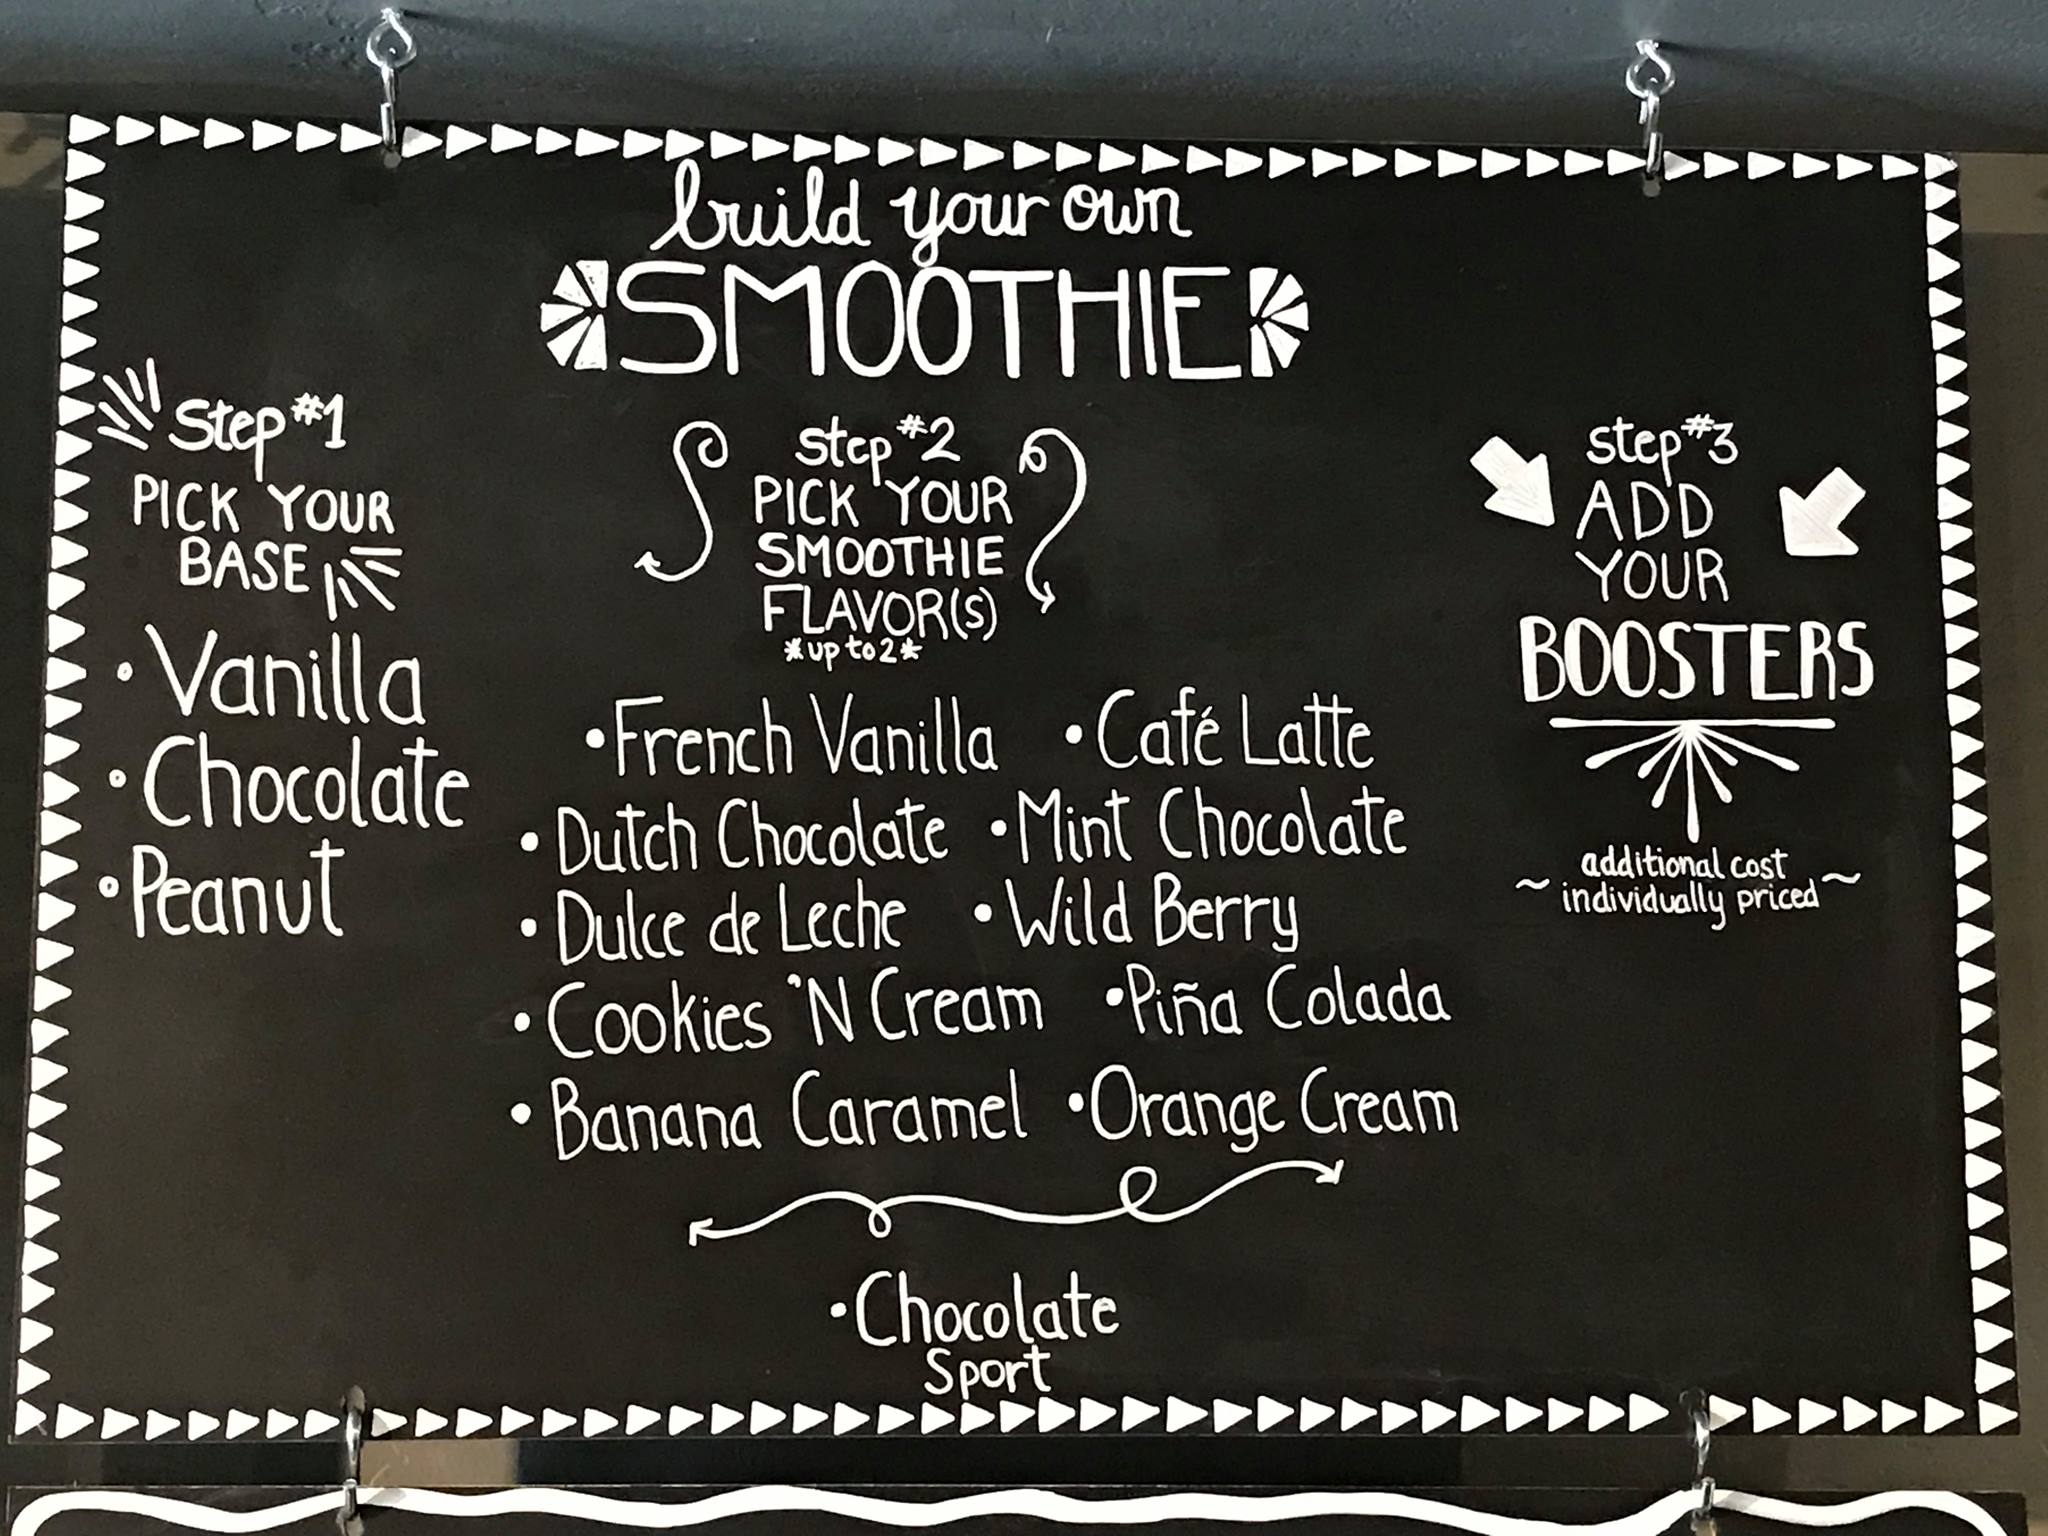 build your own
SMOOTHIE
Step #1
PICK YOUR
BASE
• Vanilla
• Chocolate
• Peanut
step #2
PICK YOUR
SMOOTHIE
FLAVOR(S)
*up to 2*
• French Vanilla • Café Latte
• Dutch Chocolate • Mint Chocolate
• Dulce de Leche • Wild Berry
• Cookies 'N Cream • Piña Colada
• Banana Caramel • Orange Cream
• Chocolate
Sport
step #3
ADD
YOUR
BOOSTERS
~ additional cost ~
individually priced